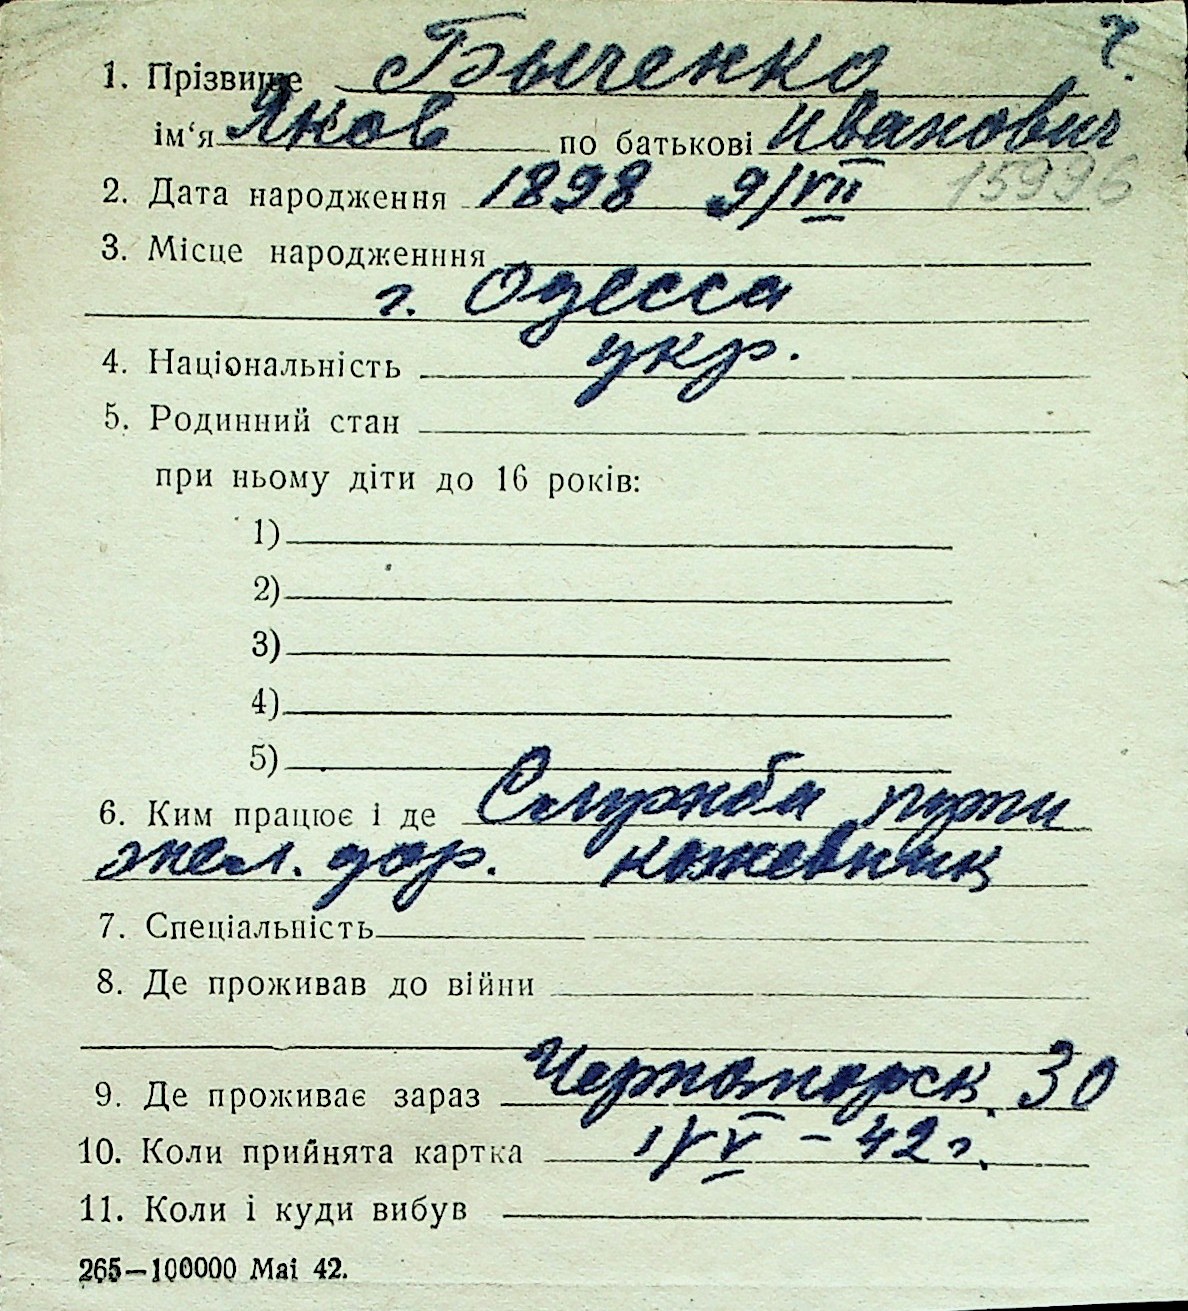 ч.
1. Прізвище Быченко
ім‘я Яков по батькові Иванович
2. Дата народження 1898 9/VII 15996
3. Місце народженння
г. Одесса
4. Національність укр.
5. Родинний стан
при ньому діти до 16 років:
1)
2)
3)
4)
5)
6. Ким працює і де Служба пути
жел. дор. кожевник
7. Спеціальність
8. Де проживав до війни
9. Де проживає зараз Черноморск. 30
10. Коли прийнята картка 1/V – 42 г.
11. Коли і куди вибув
265—100000 Маі 42.